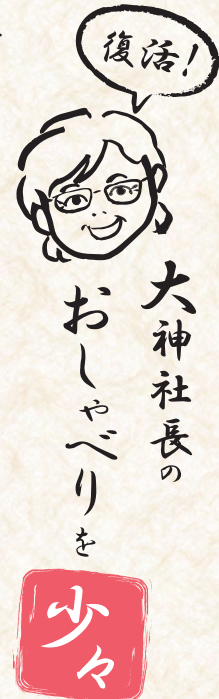 復活!
大神社長の
おしゃべりを
少々